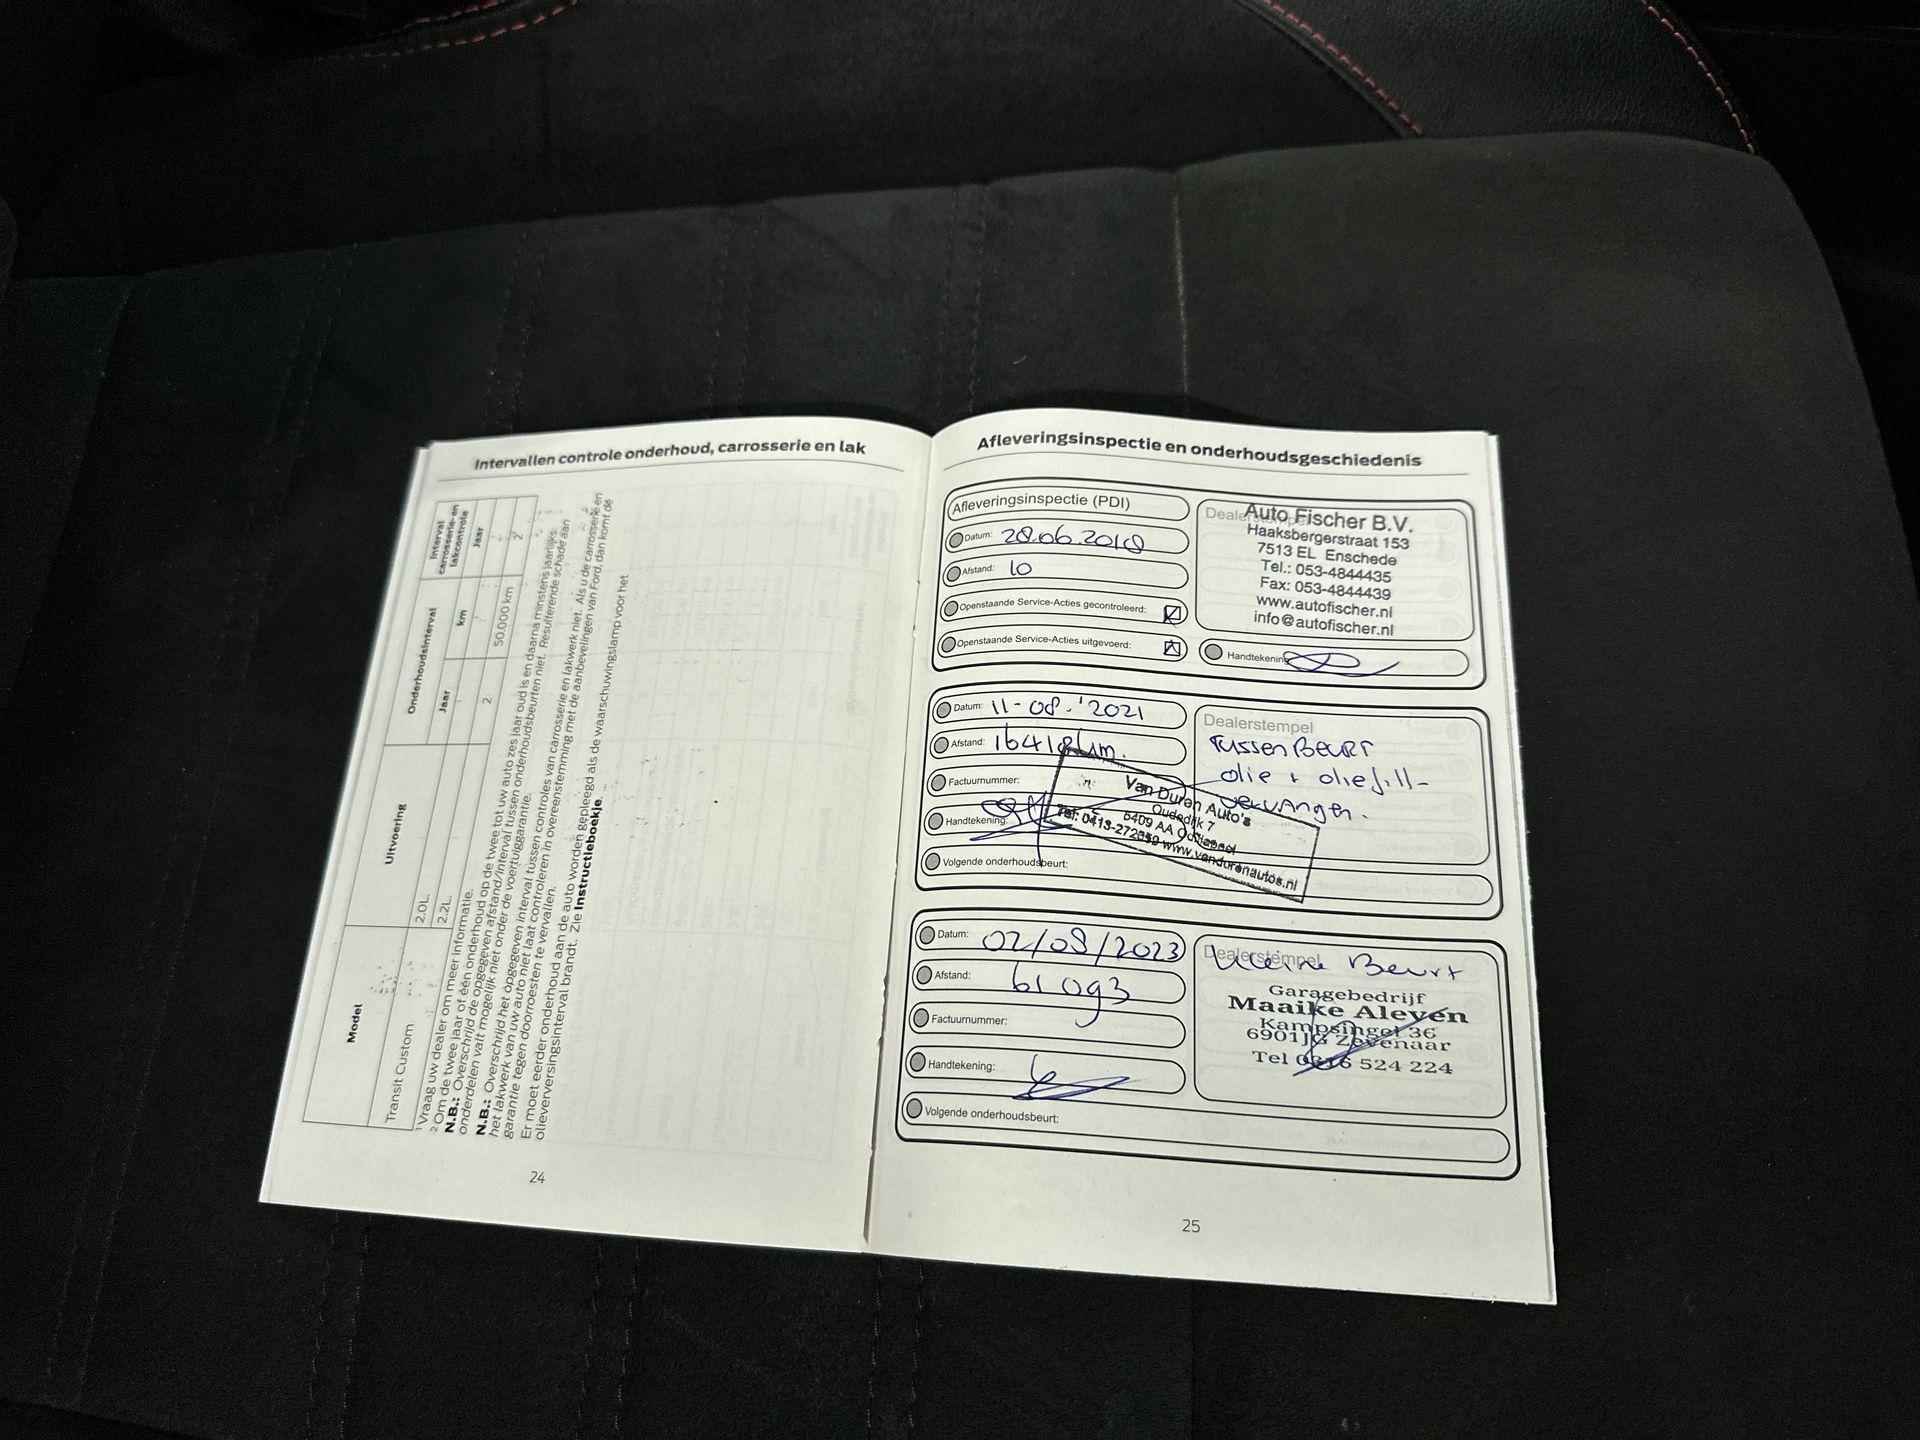 Intervallen controle onderhoud, carrosserie en lak
Model
Uitvoering
Onderhoudsinterval
Interval carrosserie- en lakcontrole
Jaar
km
Jaar
Transit Custom
2.0L
2.2L
2
50.000 km
2
1 Vraag uw dealer om meer informatie.
2 Om de twee jaar of één onderhoud op de twee tot uw auto zes jaar oud is en daarna minstens jaarlijks.
N.B.: Overschrijd de opgegeven afstand/interval tussen onderhoudsbeurten niet. Resulterende schade aan
onderdelen valt mogelijk niet onder de voertuiggarantie.
N.B.: Overschrijd het opgegeven interval tussen controles van carrosserie en lakwerk niet. Als u de carrosserie en
het lakwerk van uw auto niet laat controleren in overeenstemming met de aanbevelingen van Ford, dan komt de
garantie tegen doorroesten te vervallen.
Er moet eerder onderhoud aan de auto worden gepleegd als de waarschuwingslamp voor het
olieverversingsinterval brandt. Zie Instructieboekje.
24
Afleveringsinspectie en onderhoudsgeschiedenis
Afleveringsinspectie (PDI)
Datum: 28.06.2018
Afstand: 10
Openstaande Service-Acties gecontroleerd:
Openstaande Service-Acties uitgevoerd:
Dealerstempel
Auto Fischer B.V.
Haaksbergerstraat 153
7513 EL Enschede
Tel.: 053-4844435
Fax: 053-4844439
www.autofischer.nl
info@autofischer.nl
Handtekening
Datum: 11-08-'2021
Afstand:
Factuurnummer:
Handtekening:
Volgende onderhoudsbeurt:
Dealerstempel
Tussen Beurt
olie + oliefilt-
vervangen.
Van Duren Auto's
Oudedijk 7
5409 AA Odiliapeel
Tel: www.vandurenautos.nl
Datum: 02/08/2023
Afstand: 61093
Factuurnummer:
Handtekening:
Volgende onderhoudsbeurt:
Dealerstempel
Kleine Beurt
Garagebedrijf
Maaike Aleven
Kampsingel 36
6901JG Zevenaar
Tel 0316 524 224
25